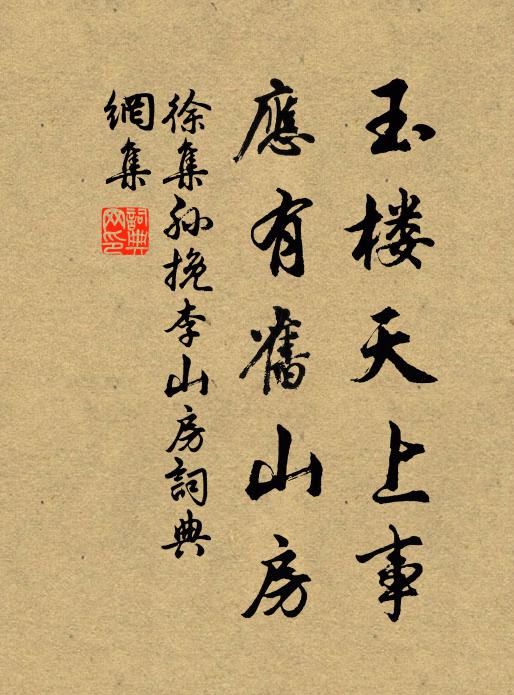 玉楼天上事
應有舊山房
徐集孙挽李山房詞典
網集
詞典网印